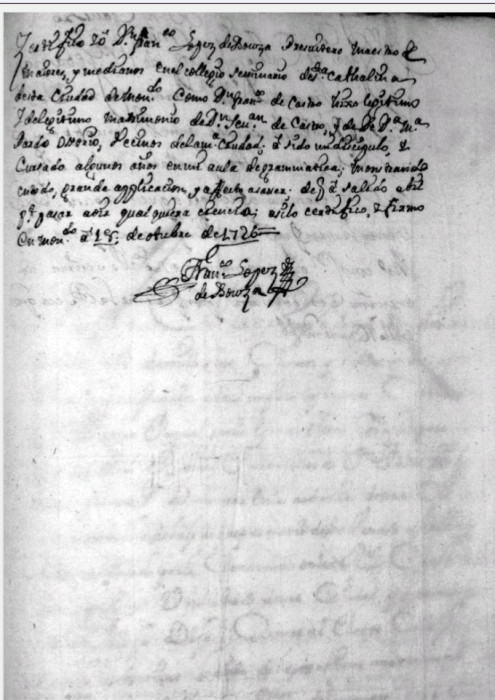 Zertifico Yo Dn Franco Lopez de Bouza Presvitero Maestro de
maiores, y medianos en el collegio Seminario de Sta Cathalina
desta Ciudad de Mondo Como Dn Franco de Castro hixo lexitimo
y de legitimo matrimonio de Dn de Castro, y de Da Ma
Pardo Osorio, Vecinos de la ma Ciudad, a sido mi discipulo, &
Cursado algunos años en mi aula de grammatica; mostrando
cuido, grande applicacion, y afecto a saver. de q a salido abil
pa pasar a oir qualquiera ciencia; asi lo certifico, & firmo
en Mondo a 18 de otubre de 1726
Franco Lopez
de Bouza